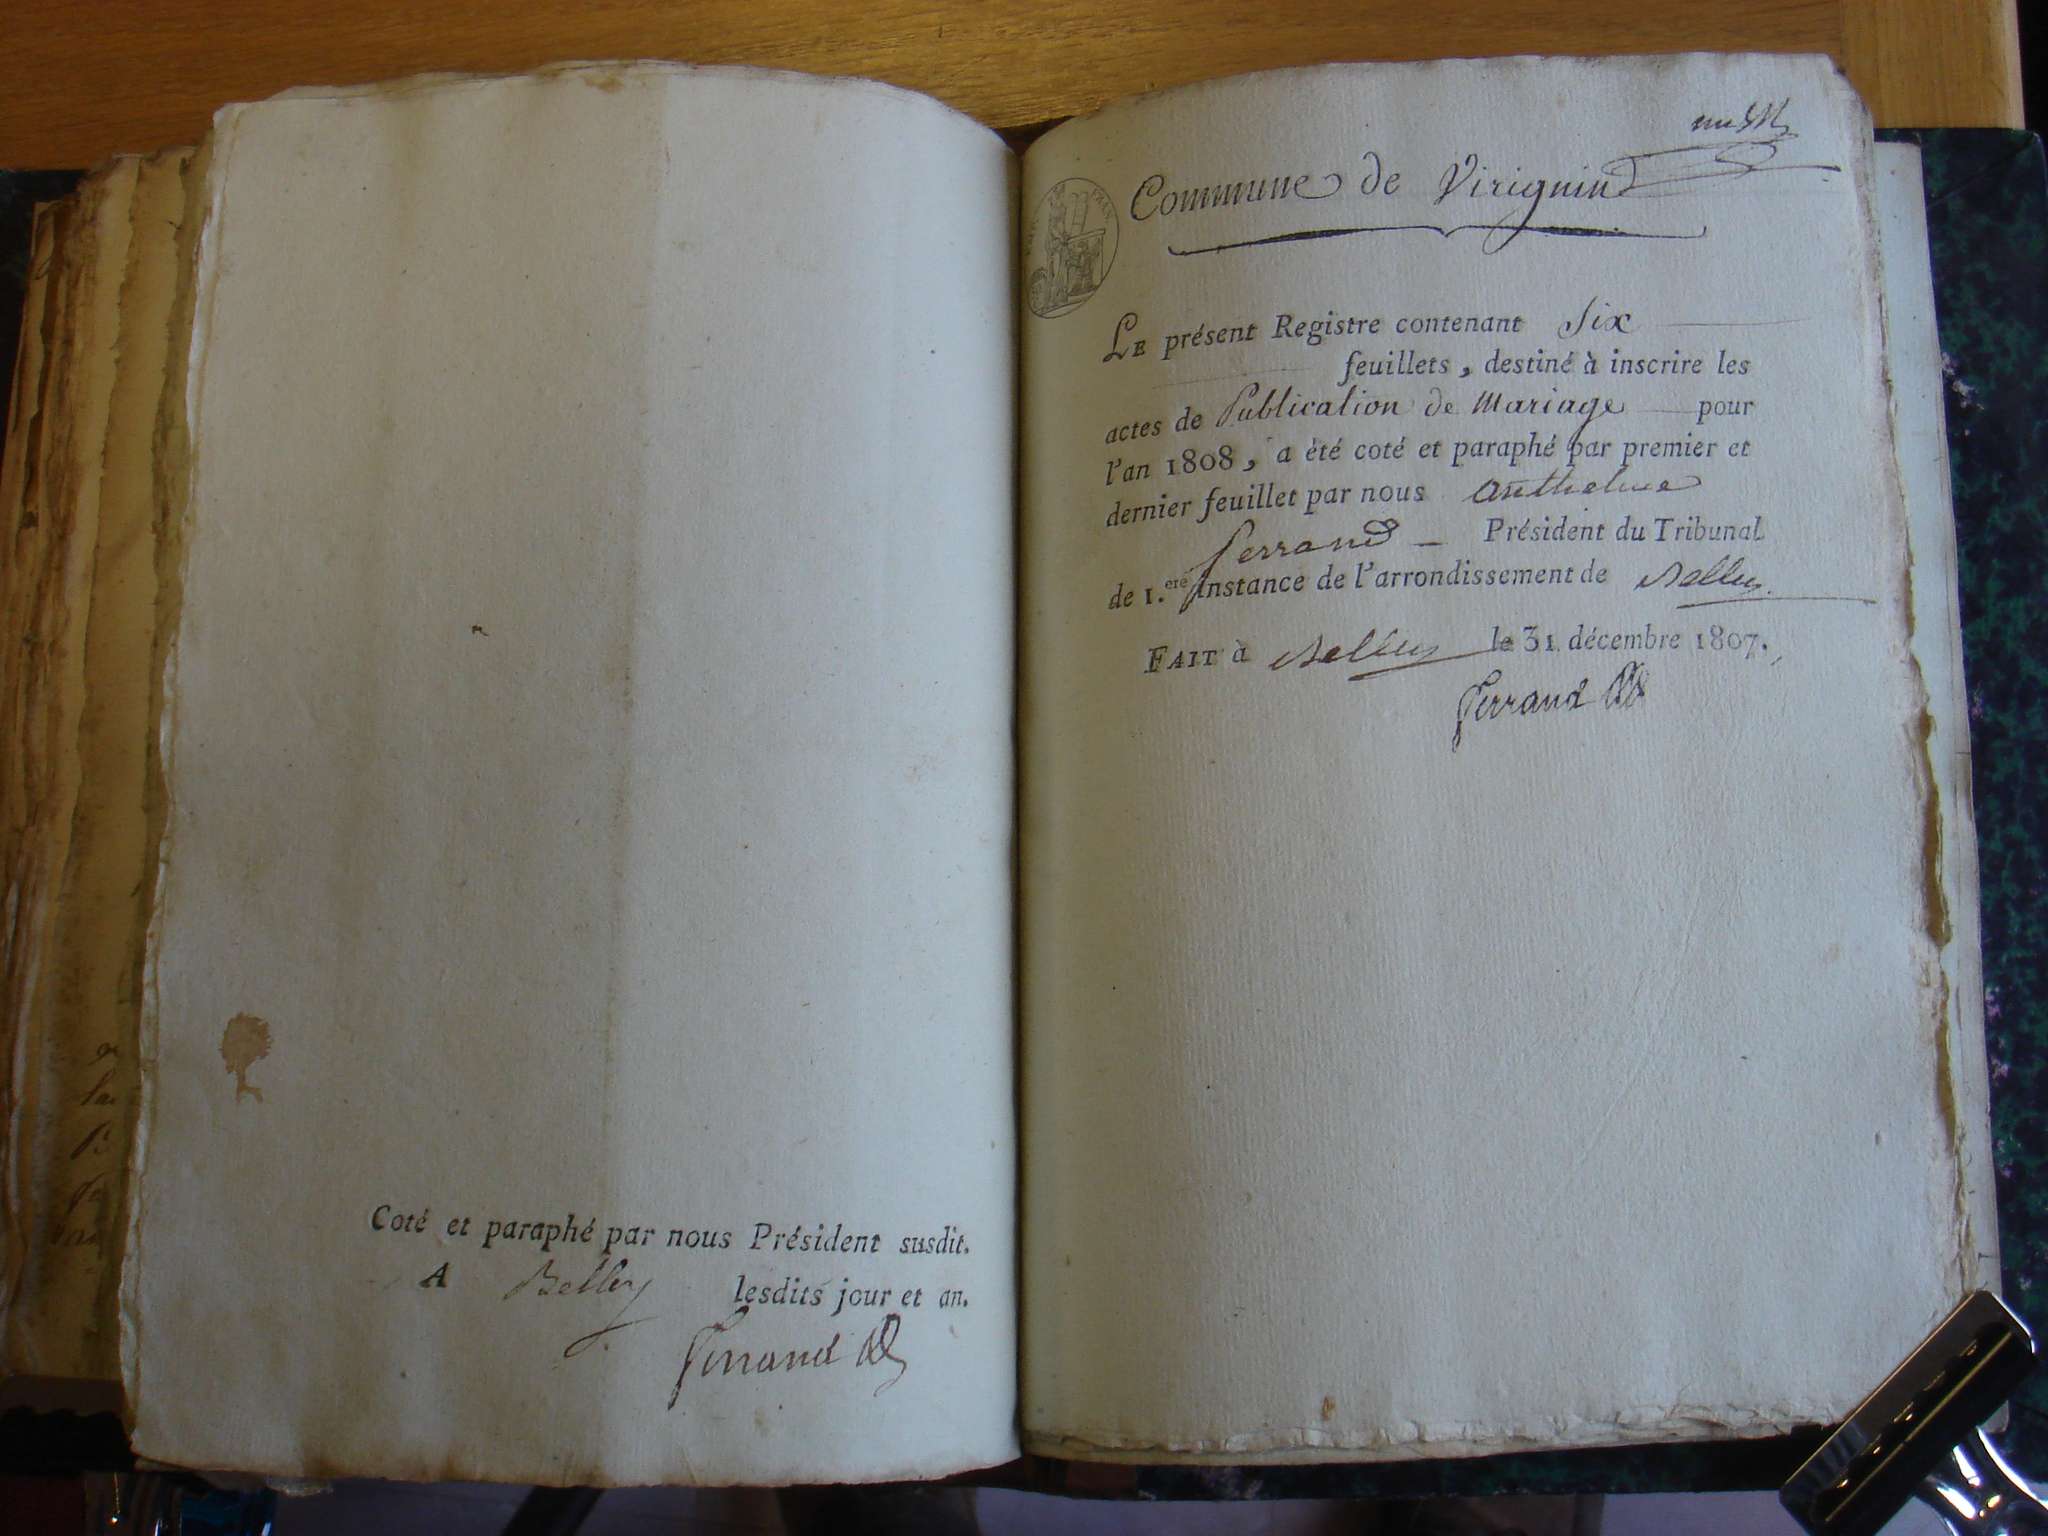 Coté et paraphé par nous Président susdit.
A Belley lesdits jour et an.
Ferrand
Commune de Virignin
LE présent Registre contenant Six
feuillets, destiné à inscrire les
actes de Publication de Mariage pour
l'an 1808, a été coté et paraphé par premier et
dernier feuillet par nous Anthelme
Ferrand Président du Tribunal
de 1.ere instance de l'arrondissement de Belley
FAIT à Belley le 31 décembre 1807.
Ferrand